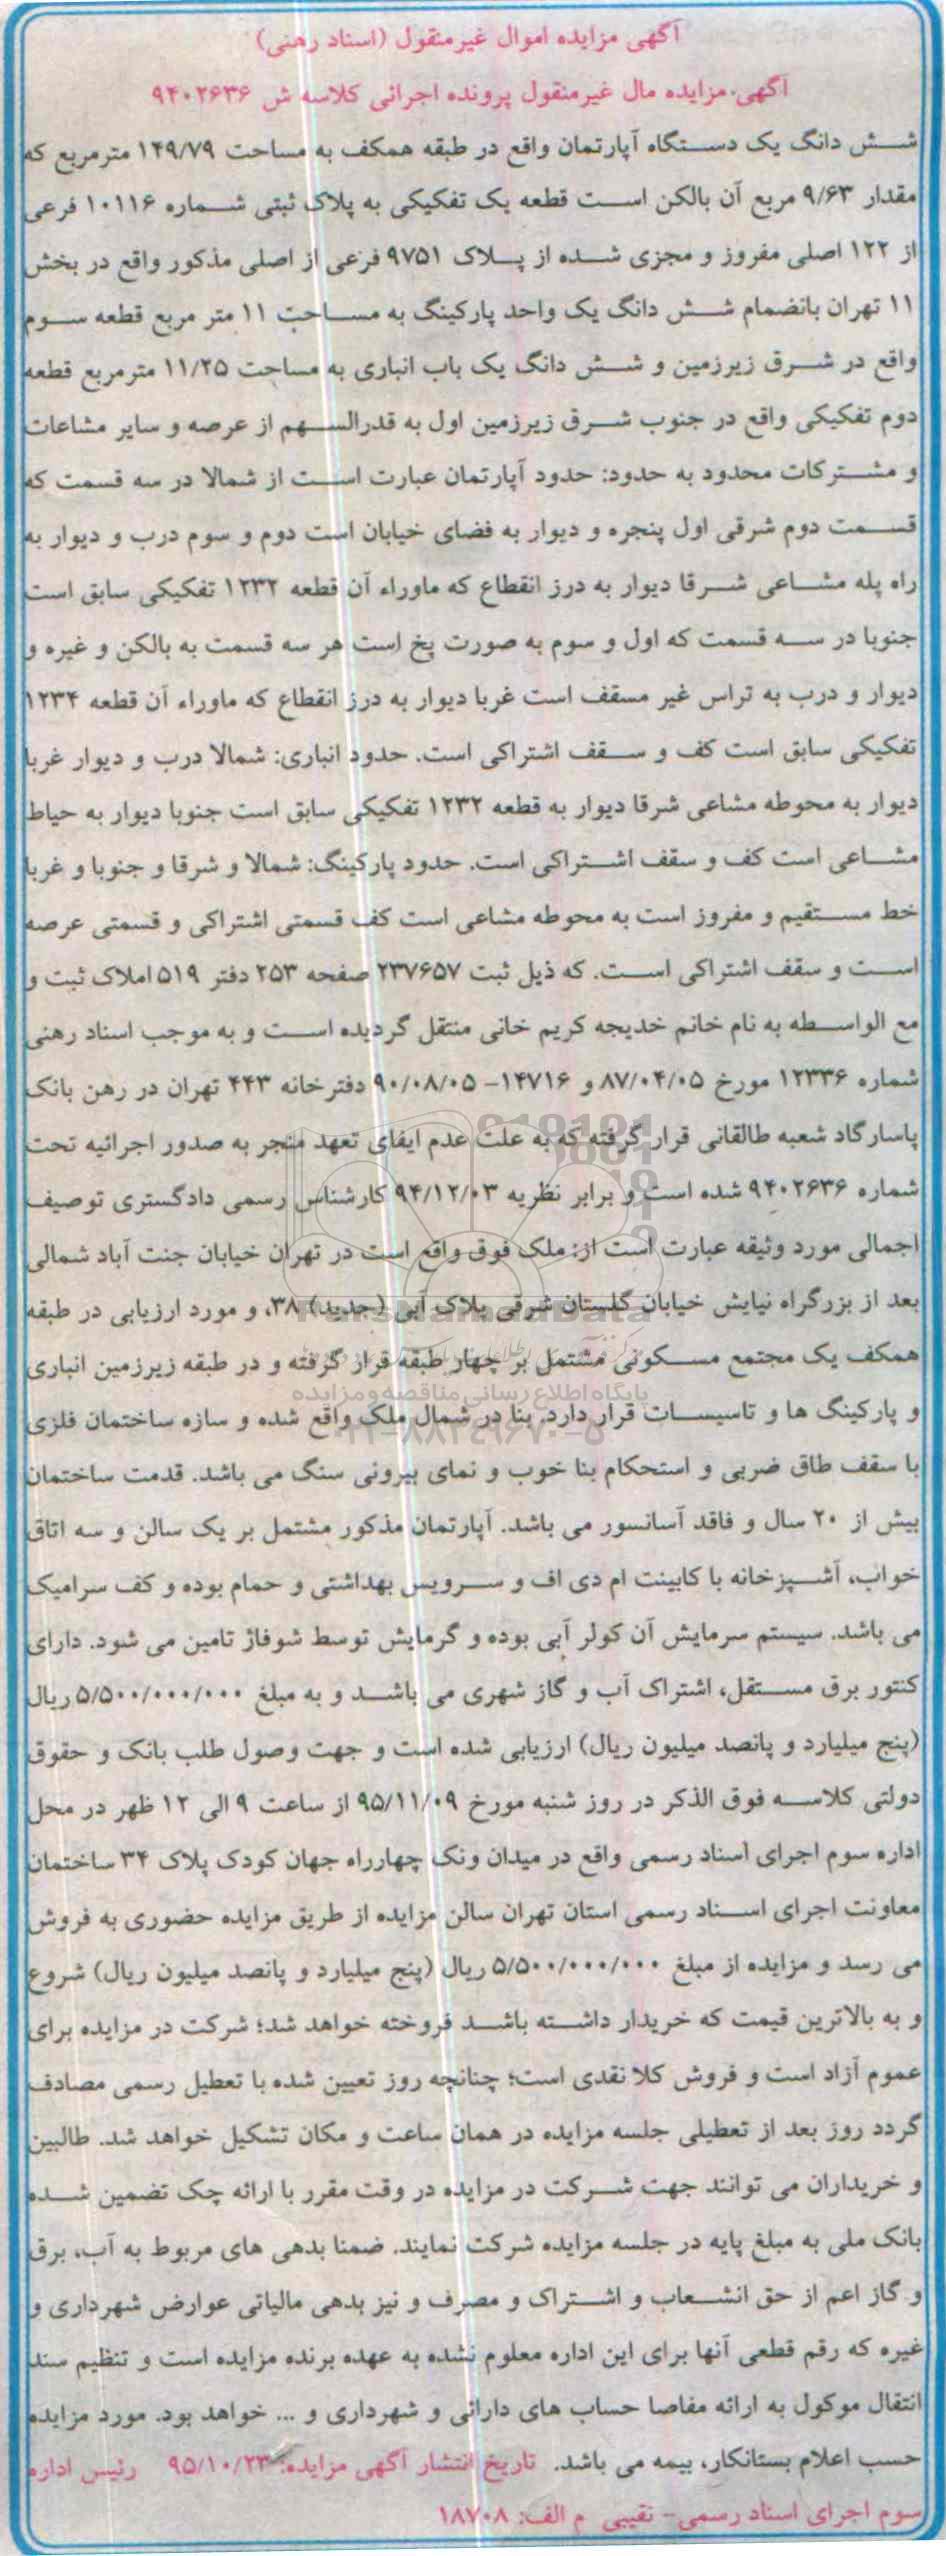 آگهی مزایده اموال غیرمنقول (اسناد رهنی)
آگهی مزایده مال غیرمنقول پرونده اجرائی کلاسه ش ۹۴۰۲۶۳۶
شش دانگ یک دستگاه آپارتمان واقع در طبقه همکف به مساحت ۱۴۹/۷۹ مترمربع که
مقدار ۹/۶۳ مربع آن بالکن است قطعه یک تفکیکی به پلاک ثبتی شماره ۱۰۱۱۶ فرعی
از ۱۲۲ اصلی مفروز و مجزی شده از پلاک ۹۷۵۱ فرعی از اصلی مذکور واقع در بخش
۱۱ تهران بانضمام شش دانگ یک واحد پارکینگ به مساحت ۱۱ متر مربع قطعه سوم
واقع در شرق زیرزمین و شش دانگ یک باب انباری به مساحت ۱۱/۲۵ مترمربع قطعه
دوم تفکیکی واقع در جنوب شرق زیرزمین اول به قدرالسهم از عرصه و سایر مشاعات
و مشترکات محدود به حدود: حدود آپارتمان عبارت است از شمالا در سه قسمت که
قسمت دوم شرقی اول پنجره و دیوار به فضای خیابان است دوم و سوم درب و دیوار به
راه پله مشاعی شرقا دیوار به درز انقطاع که ماوراء آن قطعه ۱۲۳۲ تفکیکی سابق است
جنوبا در سه قسمت که اول و سوم به صورت پخ است هر سه قسمت به بالکن و غیره و
دیوار و درب به تراس غیر مسقف است غربا دیوار به درز انقطاع که ماوراء آن قطعه ۱۲۳۴
تفکیکی سابق است کف و سقف اشتراکی است. حدود انباری: شمالا درب و دیوار غربا
دیوار به محوطه مشاعی شرقا دیوار به قطعه ۱۲۳۲ تفکیکی سابق است جنوبا دیوار به حیاط
مشاعی است کف و سقف اشتراکی است. حدود پارکینگ: شمالا و شرقا و جنوبا و غربا
خط مستقیم و مفروز است به محوطه مشاعی است کف قسمتی اشتراکی و قسمتی عرصه
است و سقف اشتراکی است. که ذیل ثبت ۲۳۷۶۵۷ صفحه ۲۵۳ دفتر ۵۱۹ املاک ثبت و
مع الواسطه به نام خانم خدیجه کریم خانی منتقل گردیده است و به موجب اسناد رهنی
شماره ۱۲۳۳۶ مورخ ۸۷/۰۴/۰۵ و ۱۴۷۱۶- ۹۰/۰۸/۰۵ دفترخانه ۴۴۳ تهران در رهن بانک
پاسارگاد شعبه طالقانی قرار گرفته که به علت عدم ایفای تعهد منجر به صدور اجرائیه تحت
شماره ۹۴۰۲۶۳۶ شده است و برابر نظریه ۹۴/۱۲/۰۳ کارشناس رسمی دادگستری توصیف
اجمالی مورد وثیقه عبارت است از: ملک فوق واقع است در تهران خیابان جنت آباد شمالی
بعد از بزرگراه نیایش خیابان گلستان شرقی پلاک آبی (جدید) ۳۸، و مورد ارزیابی در طبقه
همکف یک مجتمع مسکونی مشتمل بر چهار طبقه قرار گرفته و در طبقه زیرزمین انباری
و پارکینگ ها و تاسیسات قرار دارد. بنا در شمال ملک واقع شده و سازه ساختمان فلزی
با سقف طاق ضربی و استحکام بنا خوب و نمای بیرونی سنگ می باشد. قدمت ساختمان
بیش از ۲۰ سال و فاقد آسانسور می باشد. آپارتمان مذکور مشتمل بر یک سالن و سه اتاق
خواب، آشپزخانه با کابینت ام دی اف و سرویس بهداشتی و حمام بوده و کف سرامیک
می باشد. سیستم سرمایش آن کولر آبی بوده و گرمایش توسط شوفاژ تامین می شود. دارای
کنتور برق مستقل، اشتراک آب و گاز شهری می باشد و به مبلغ ۵/۵۰۰/۰۰۰/۰۰۰ ریال
(پنج میلیارد و پانصد میلیون ریال) ارزیابی شده است و جهت وصول طلب بانک و حقوق
دولتی کلاسه فوق الذکر در روز شنبه مورخ ۹۵/۱۱/۰۹ از ساعت ۹ الی ۱۲ ظهر در محل
اداره سوم اجرای اسناد رسمی واقع در میدان ونک چهارراه جهان کودک پلاک ۳۴ ساختمان
معاونت اجرای اسناد رسمی استان تهران سالن مزایده از طریق مزایده حضوری به فروش
می رسد و مزایده از مبلغ ۵/۵۰۰/۰۰۰/۰۰۰ ریال (پنج میلیارد و پانصد میلیون ریال) شروع
و به بالاترین قیمت که خریدار داشته باشد فروخته خواهد شد؛ شرکت در مزایده برای
عموم آزاد است و فروش کلا نقدی است؛ چنانچه روز تعیین شده با تعطیل رسمی مصادف
گردد روز بعد از تعطیلی جلسه مزایده در همان ساعت و مکان تشکیل خواهد شد. طالبین
و خریداران می توانند جهت شرکت در مزایده در وقت مقرر با ارائه چک تضمین شده
بانک ملی به مبلغ پایه در جلسه مزایده شرکت نمایند. ضمنا بدهی های مربوط به آب، برق
و گاز اعم از حق انشعاب و اشتراک و مصرف و نیز بدهی مالیاتی عوارض شهرداری و
غیره که رقم قطعی آنها برای این اداره معلوم نشده به عهده برنده مزایده است و تنظیم سند
انتقال موکول به ارائه مفاصا حساب های دارائی و شهرداری و ... خواهد بود. مورد مزایده
حسب اعلام بستانکار، بیمه می باشد. تاریخ انتشار آگهی مزایده: ۹۵/۱۰/۲۳ رئیس اداره
سوم اجرای اسناد رسمی- نقیبی م الف: ۱۸۷۰۸
ParsNamadData
پایگاه اطلاع رسانی مناقصه و مزایده
۰۲۱-۸۸۳۴۹۶۷۰-۵